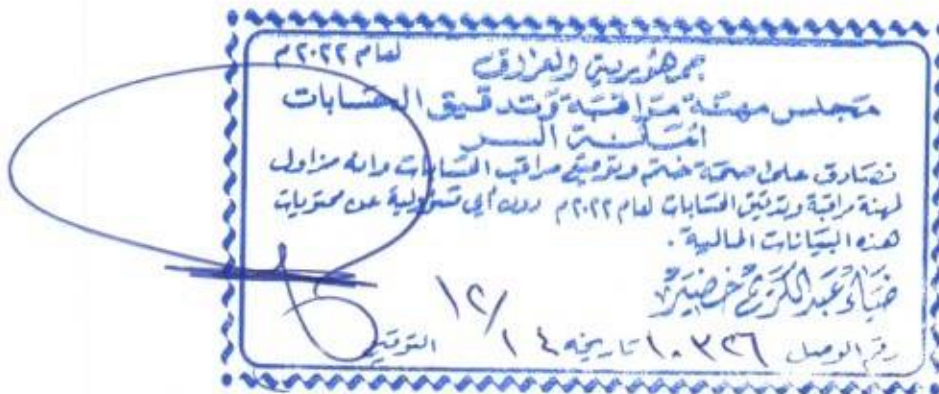 لعام ٢٠٢٢م
جمهورية العراق
مجلس مهنة مراقبة وتدقيق الحسابات
أمانة السر
نصادق على صحة ختم وتوقيع مراقب الحسابات وانه مزاول
لمهنة مراقبة وتدقيق الحسابات لعام ٢٠٢٢م دون أي مسؤولية عن محتويات
هذه البيانات المالية.
ضياء عبد الكريم خضير
رقم الوصل ١٠٣٢٦ تاريخه ١٤ / ١٢ التوقيع